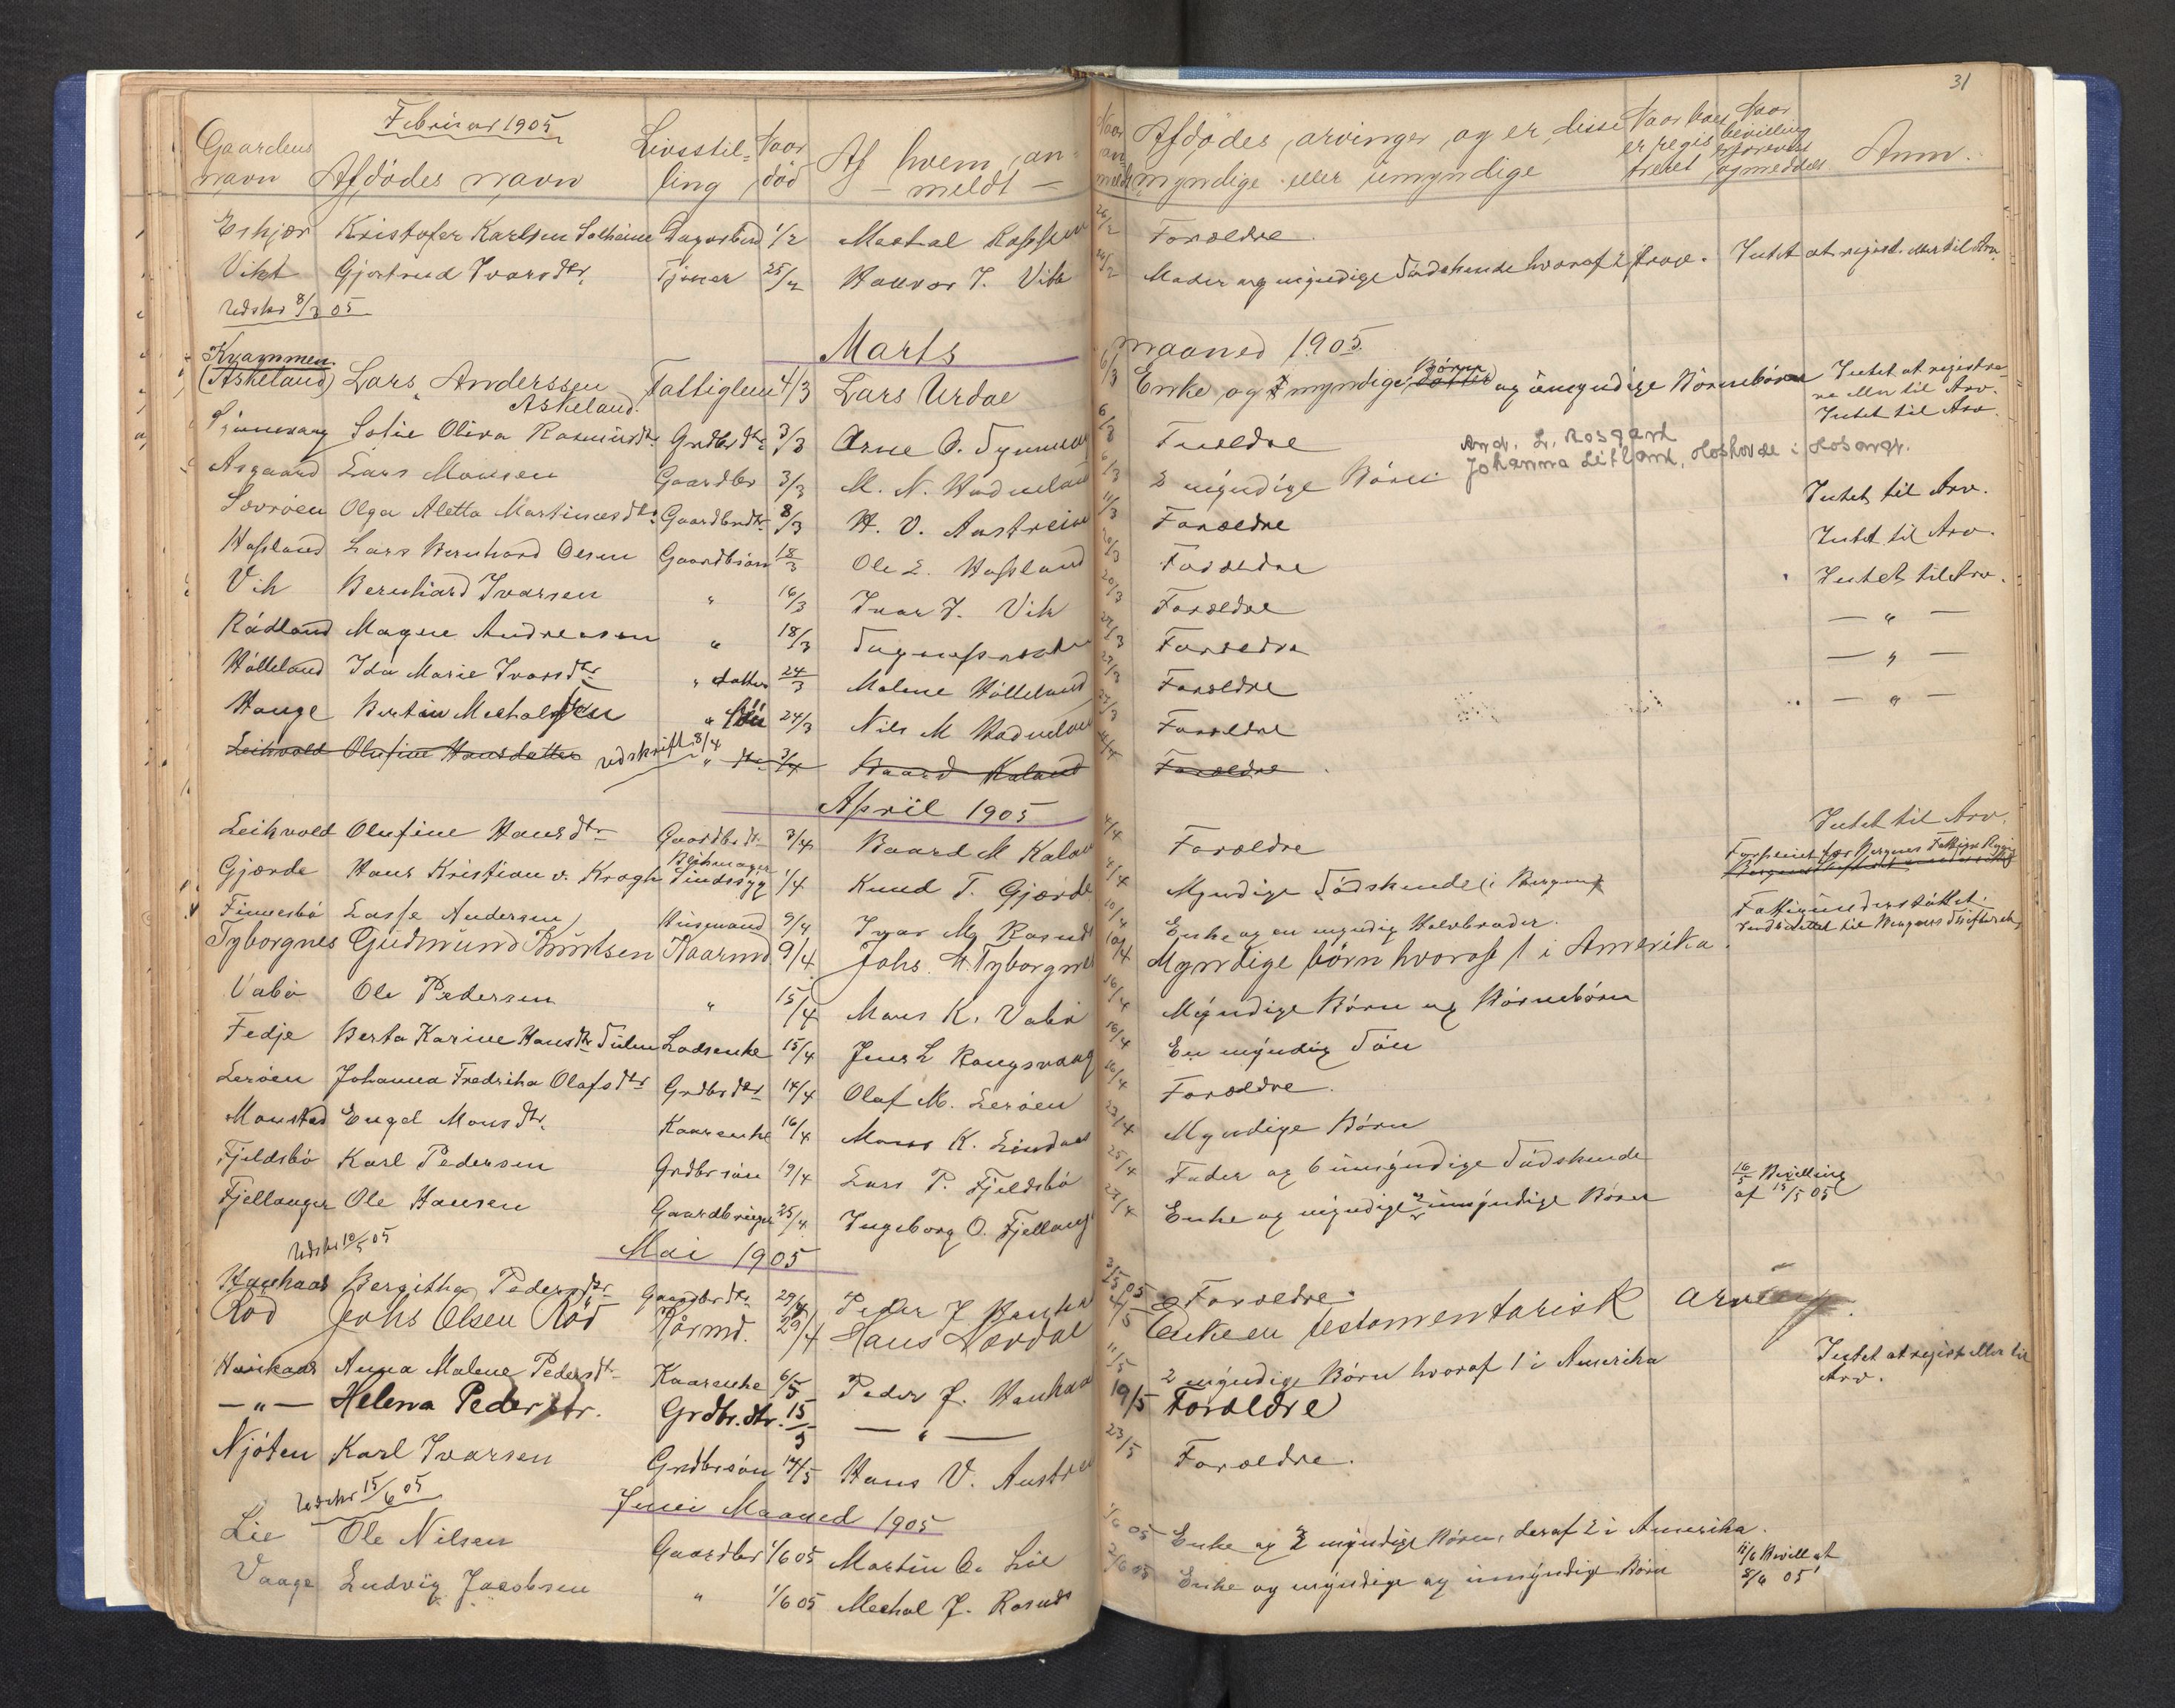 31
Februar 1905
Gaardens navn Afdödes navn Livsstil= ling Naar död Af hvem an= meldt Naar an= meldt Afdödes arvinger og er disse myndige eller umyndige Naar boet er regis treret Naar bevilling og meddelt Anm.
Eskjær Kristofer Karlsen Solheim 1/2 Mechal 26/2 Forældre
Vikt Gjertrud Ivarsdtr. Tjener 25/2 Haavar I. Vikt 26/2 Moder og myndige Södskende hvoraf 2 fravr. Intet at regist. eller til Arv.
Udskr 8/3 05
Marts maaned 1905
Kvammen
(Askeland) Lars Anderssen Askeland. Fattiglem 4/3 Lars Urdal 6/3 Enke og myndige Börn og umyndige Börnebörn Intet at registre= re eller til Arv.
Sofie Oliva Rasmusdtr Grdbrdtr 3/3 Arne O. 6/3 Forældre Intet til Arv.
Asgaard Lars Monsen Gaardbr 3/3 M. N. Hodneland 6/3 2 myndige Börn And. L. Rosgard
Johanna Litland, i Hosangr.
Sævröen Olga Aletta Martinusdtr Gaardbrdtr 8/3 H. V. Austreim 11/3 Forældre Intet til Arv.
Hopland Lars Bernhard Olsen Gaardbrsön 18/3 Ole L. Hopland 20/3 Forældre Intet til Arv.
Vik Bernhard Ivarsen " 16/3 Ivar J. Vik 20/3 Forældre Intet til Arv.
Rådland Magne Andreassen " 18/3 Sognepresten 22/3 Forældre — " —
Hölleland Ida Marie Ivarsdtr " datter 24/3 Malene Hölleland 27/3 Forældre — " —
Hauge Bertin Mechalsen " Sön 24/3 Nils M Hodneland 27/3 Forældre — " —
Leikvold Olufine Hansdatter udskrift 8/4 " dtr 3/4 Baard Kaland 4/4 Forældre
April 1905
Leikvold Olufine Hansdtr Gaardbrdtr 3/4 Baard M Kaland 4/4 Forældre Intet til Arv.
Gjærde Hans Kristian v. Krogh Blikmager Sindssyg 1/4 Knud T. Gjærde 4/4 Myndige Södskende (i Bergen) Forpleiet for Bergens
Finnesbö Lasse Andersen Husmand 9/4 Ivar Mg 10/4 Enke og en myndig Halvbroder. Fattigunderstöttet.
Indberettet til Bergens Skifteret
Tyborgnes Gudmund Knutsen Kaarmd 9/4 Johs. H. Tyborgnes 10/4 Myndige börn hvoraf 1 i Amerika.
Vabö Ole Pedersen " 15/4 Mons K. Vabö 16/4 Myndige Börn og Börnebörn
Fedje Berta Karine Hansdtr Lodsenke 15/4 Jens L Kongsvaag 16/4 En myndig Sön
Leröen Johanna Fredrika Olafsdtr Grdbrdtr 14/4 Olaf M. Leröen 16/4 Forældre
Monstad Engel Monsdtr. Kaarenke 16/4 Mons K. Lindaas 22/4 Myndige Börn
Fjeldsbö Karl Pedersen Grdbrsön 19/4 Lars P. Fjeldsbö 25/4 Fader og 6 umyndige Södskende
Fjellanger Ole Hansen Gaardbruger 25/4 Ingeborg O. Fjellanger 27/4 Enke og myndige og umyndige Börn 16/5 Bevilling af 15/5 05
Udskr 10/5 05
Mai 1905
Haukaas Bergitha Pedersdtr Gaardbrdtr 29/4 Peder J. Haukaas 2/5 05 Forældre
Röd Johs Olsen Röd Kårmd. 29/4 Hans Nordal 4/5 Enke en testamentarisk arving.
Haukaas Anna Malene Pedersdtr Kaarenke 6/5 Peder J. Haukaas 11/5 2 myndige Börn hvoraf 1 i Amerika Intet at regist eller til Arv.
— " — Helena Pedersdtr. Grdbr.dtr. 15/5 — " — 19/5 Forældre
Njöten Karl Ivarsen Grdbrsön 14/5 Hans V. Austreim 23/5 Forældre.
Udskr 15/6 05
Juni Maaned 1905
Lie Ole Nilsen Gaardbr 1/6 05 Martin O. Lie 1/6 05 Enke og 2 myndige Börn, deraf 2 i Amerika.
Vaage Ludvig Jacobsen " 1/6 05 Mechal J. 2/6 05 Enke og myndige og umyndige Börn 11/6 Bevill af 8/6 05